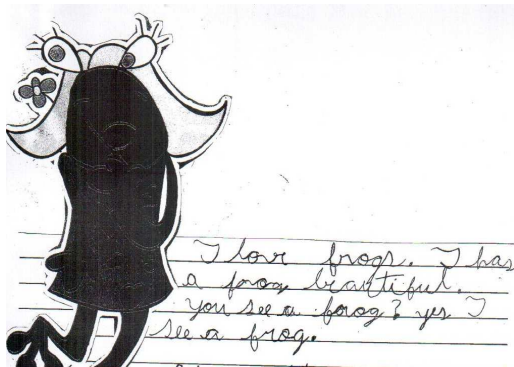 I love frogs. I has
a frog beautiful.
You see a frog? yes I
see a frog.